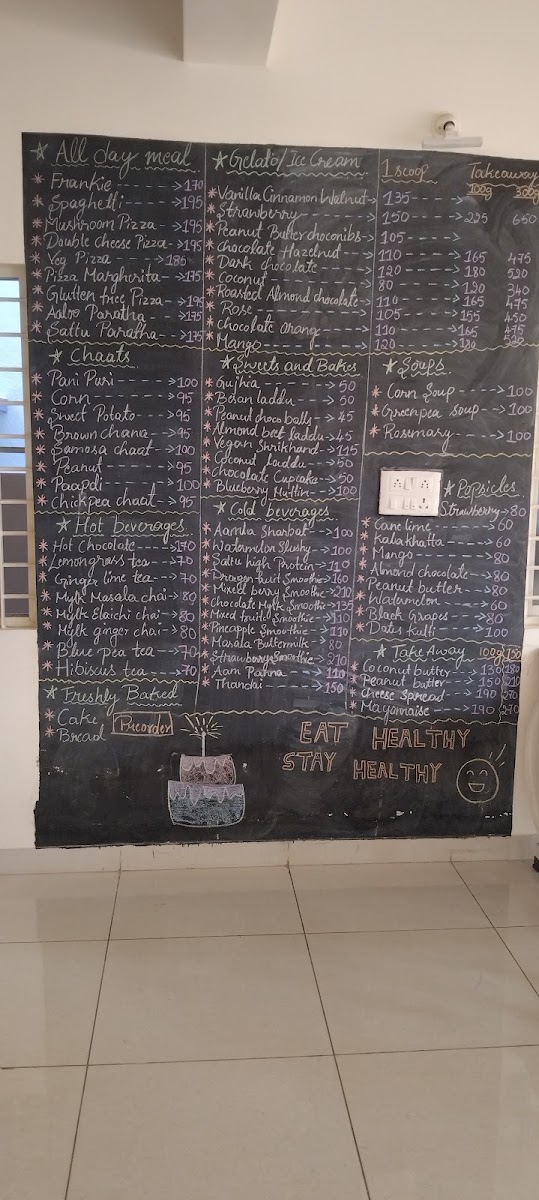 All day meal
Frankie 170
Spaghetti 195
Mushroom Pizza 195
Double cheese Pizza 195
Veg Pizza 185
Pizza Margherita 175
Glutten free Pizza 195
Aaloo Paratha 175
Sattu Paratha 175
Chaats
Pani Puri 100
Corn 95
Sweet Potato 95
Brown chana 95
Samosa chaat 100
Peanut 95
Paapdi 100
Chickpea chaat 95
Hot beverages
Hot Chocolate 170
Lemongrass tea 70
Ginger lime tea 70
Mylk Masala chai 80
Mylk Elaichi chai 80
Mylk ginger chai 80
Blue pea tea 70
Hibiscus tea 70
Freshly Baked
Cake
Bread
Preorder
Gelato/Ice Cream 1 scoop Takeaway
100g 300g
Vanilla Cinnamon Walnut 135
Strawberry 150 225 650
Peanut Butter choconibs 105
chocolate Hazelnut 110 165 475
Dark chocolate 120 180 520
Coconut 80 120 340
Roasted Almond chocolate 110 165 475
Rose 105 155 450
chocolate orange 110 165 475
Mango 120 180 520
Sweets and Bakes
Gujhia 50
Besan laddu 50
Peanut choco balls 45
Almond beet laddu 45
Vegan Shrikhand 115
Coconut laddu 50
Chocolate Cupcake 50
Blueberry Muffin 100
Cold beverages
Aamla Sharbat 100
Watermelon Slushy 100
Sattu high Protein 110
Dragon fruit Smoothie 160
Mixed berry Smoothie 210
Chocolate Mylk Smoothie 135
Mixed fruits Smoothie 110
Pineapple Smoothie 110
Masala Buttermilk 80
Strawberry Smoothie 210
Aam Panna 110
Thandai 150
Soups
Corn Soup 100
Greenpea soup 100
Rosemary 100
Popsicles
Strawberry 80
Cane lime 60
Kalakhatta 60
Mango 80
Almond chocolate 80
Peanut butter 80
Watermelon 60
Black Grapes 80
Dates kulfi 100
Take Away 100g 150
Coconut butter 130 180
Peanut butter 150 210
Cheese spread 190 270
Mayonnaise 190 270
EAT HEALTHY
STAY HEALTHY